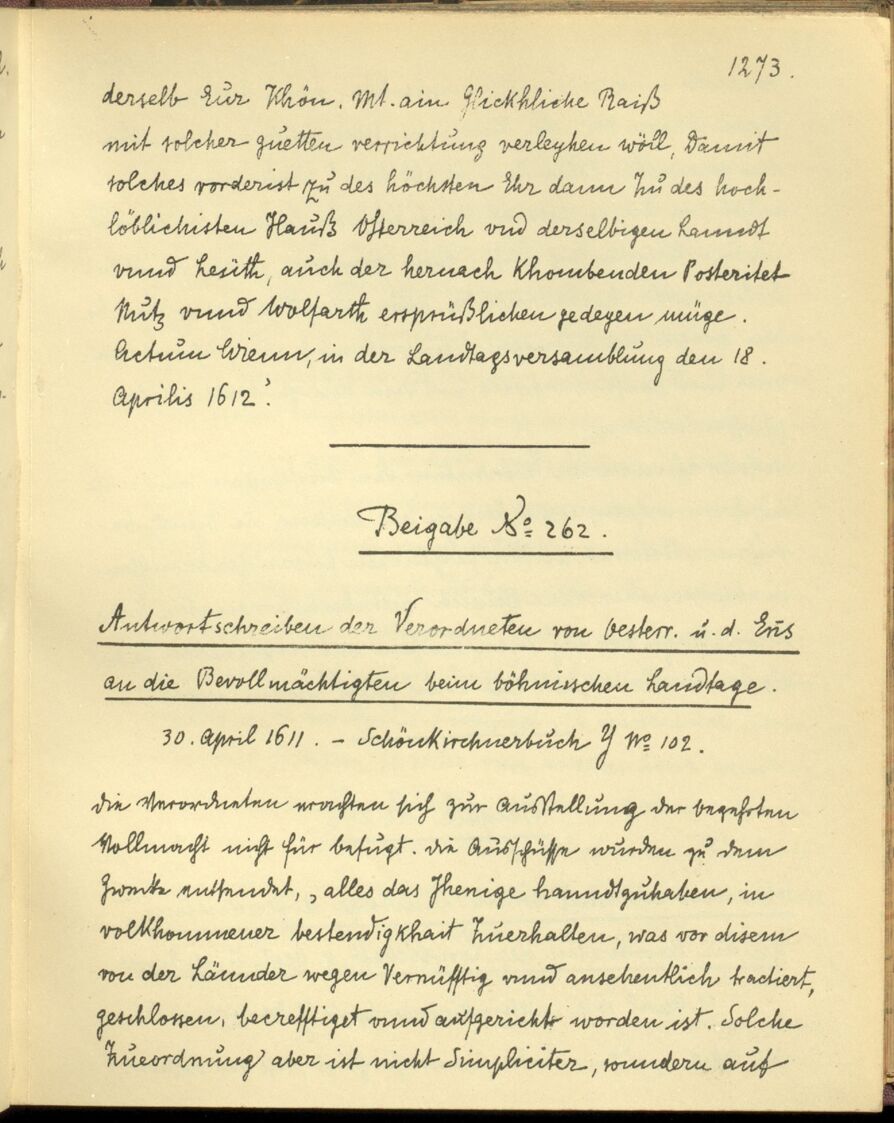 1273.
derselb Eur Khön. Mt. ain Glickhliche Raiß
mit solcher guetten verrichtung verleyhen wöll, Damit
solches vorderist zu des höchsten Ehr dann zu des hoch-
löblichisten Hauß Österreich vnd derselbigen Lanndt
vnnd Leüth, auch der hernach Khombenden Posteritet
Nutz vnnd Wolfarth ersprüßlichen gedeyen müge.
Actum Wienn, in der Landtagsversamblung den 18.
Aprilis 1612.'
Beigabe No 262.
Antwortschreiben der Verordneten von Oesterr. u. d. Ens
an die Bevollmächtigten beim böhmischen Landtage.
30. April 1611. – Schönkirchnerbuch Y No 102.
Die Verordneten erachten sich zur Ausstellung der begehrten
Vollmacht nicht für befugt. Die Ausschüsse wurden zu dem
Zwecke entsendet, „alles das Jhenige hanndtzuhaben, in
volkhommener bestendigkhait zuerhalten, was vor disem
von der Lännder wegen Vernüfftig vnnd ansehentlich tractiert,
geschlossen, becrefftiget vnnd aufgericht worden ist. Solche
zueordnung aber ist nicht Simpliciter, sonndern auf